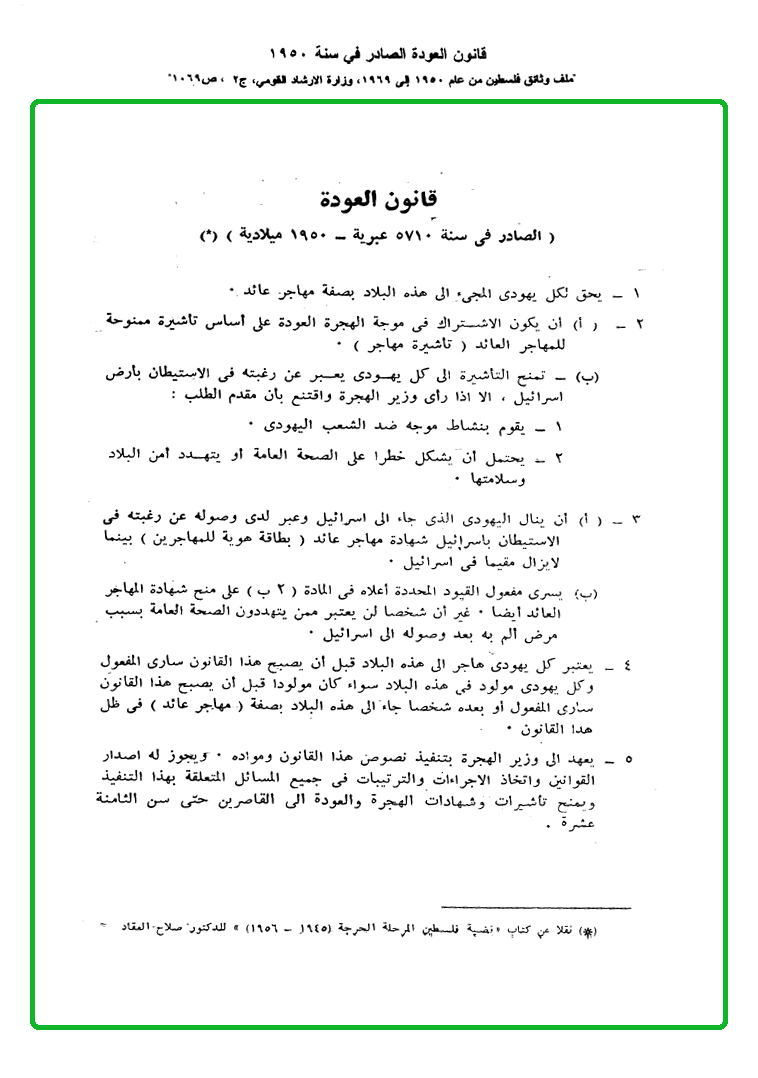 قانون العودة الصادر في سنة ١٩٥٠
"ملف وثائق فلسطين من عام ١٩٥٠ إلى ١٩٦٩، وزارة الارشاد القومي، ج٢ ، ص١٠٦٩"
قانون العودة
( الصادر فى سنة ٥٧١٠ عبرية – ١٩٥٠ ميلادية ) (*)
١ – يحق لكل يهودى المجىء الى هذه البلاد بصفة مهاجر عائد ٠
٢ – ( أ) أن يكون الاشتراك فى موجة الهجرة العودة على أساس تأشيرة ممنوحة
للمهاجر العائد ( تأشيرة مهاجر ) ٠
(ب) – تمنح التأشيرة الى كل يهودى يعبر عن رغبته فى الاستيطان بأرض
اسرائيل ، الا اذا رأى وزير الهجرة واقتنع بأن مقدم الطلب :
١ – يقوم بنشاط موجه ضد الشعب اليهودى ٠
٢ – يحتمل أن يشكل خطرا على الصحة العامة أو يتهدد أمن البلاد
وسلامتها ٠
٣ – ( أ) أن ينال اليهودى الذى جاء الى اسرائيل وعبر لدى وصوله عن رغبته فى
الاستيطان باسرائيل شهادة مهاجر عائد ( بطاقة هوية للمهاجرين ) بينما
لايزال مقيما فى اسرائيل ٠
(ب) يسرى مفعول القيود المحددة أعلاه فى المادة ( ٢ ب ) على منح شهادة المهاجر
العائد أيضا ٠ غير أن شخصا لن يعتبر ممن يتهددون الصحة العامة بسبب
مرض ألم به بعد وصوله الى اسرائيل ٠
٤ – يعتبر كل يهودى هاجر الى هذه البلاد قبل أن يصبح هذا القانون سارى المفعول
وكل يهودى مولود فى هذه البلاد سواء كان مولودا قبل أن يصبح هذا القانون
سارى المفعول أو بعده شخصا جاء الى هذه البلاد بصفة ( مهاجر عائد ) فى ظل
هذا القانون ٠
٥ – يعهد الى وزير الهجرة بتنفيذ نصوص هذا القانون ومواده ٠ ويجوز له اصدار
القوانين واتخاذ الاجراءات والترتيبات فى جميع المسائل المتعلقة بهذا التنفيذ
ويمنح تأشيرات وشهادات الهجرة والعودة الى القاصرين حتى سن الثامنة
عشرة .
(*) نقلا عن كتاب « قضية فلسطين المرحلة الحرجة (١٩٤٥ – ١٩٥٦) » للدكتور صلاح العقاد